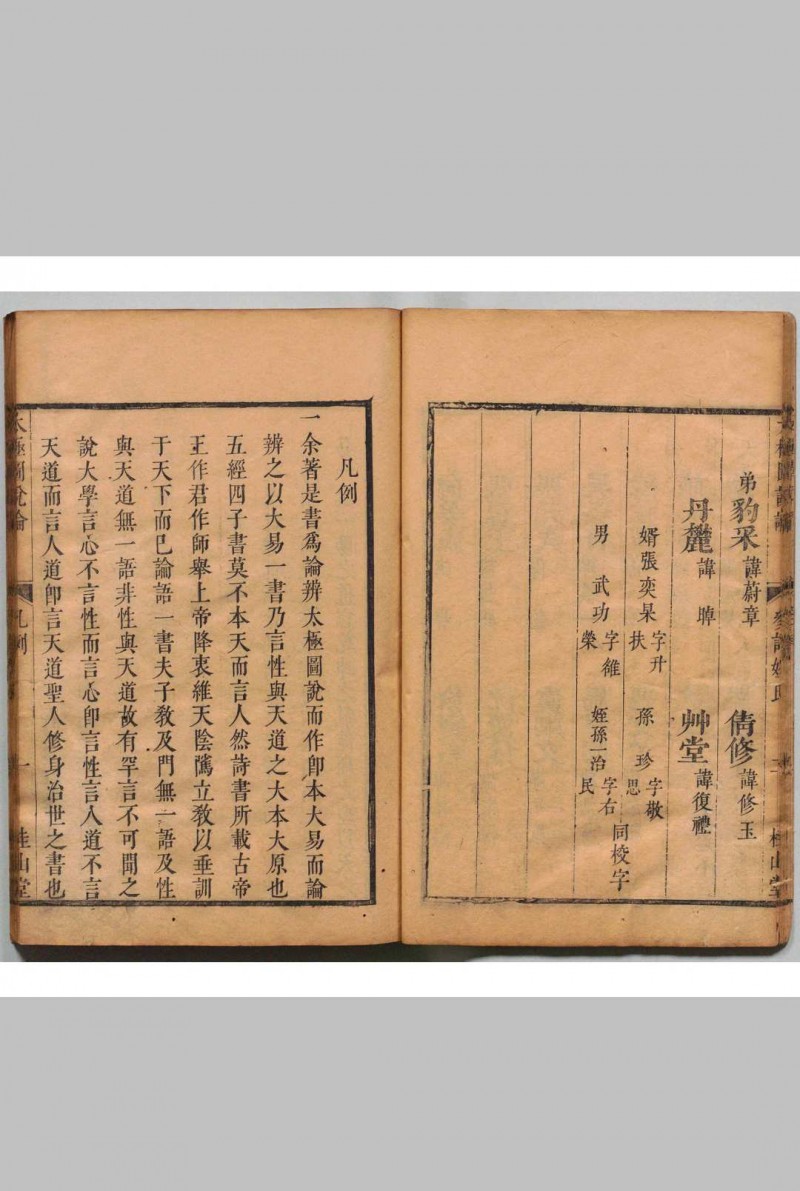 弟豹采諱蔚章　倩修諱修玉
丹麓諱晫　艸堂諱復禮
婿張奕杲字升扶　孫珍字敬思
男武功字維榮　姪孫一治字右民
同校字
桂山堂
凡例
一余著是書爲論辨太極圖說而作卽本大易而論
辨之以大易一書乃言性與天道之大本大原也
五經四子書莫不本天而言人然詩書所載古帝
王作君作師舉上帝降衷維天陰隲立敎以垂訓
于天下而已論語一書夫子敎及門無一語及性
與天道無一語非性與天道故有罕言不可聞之
說大學言心不言性而言心卽言性言人道不言
天道而言人道卽言天道聖人修身治世之書也
太極圖說論　凡例　一　桂山堂